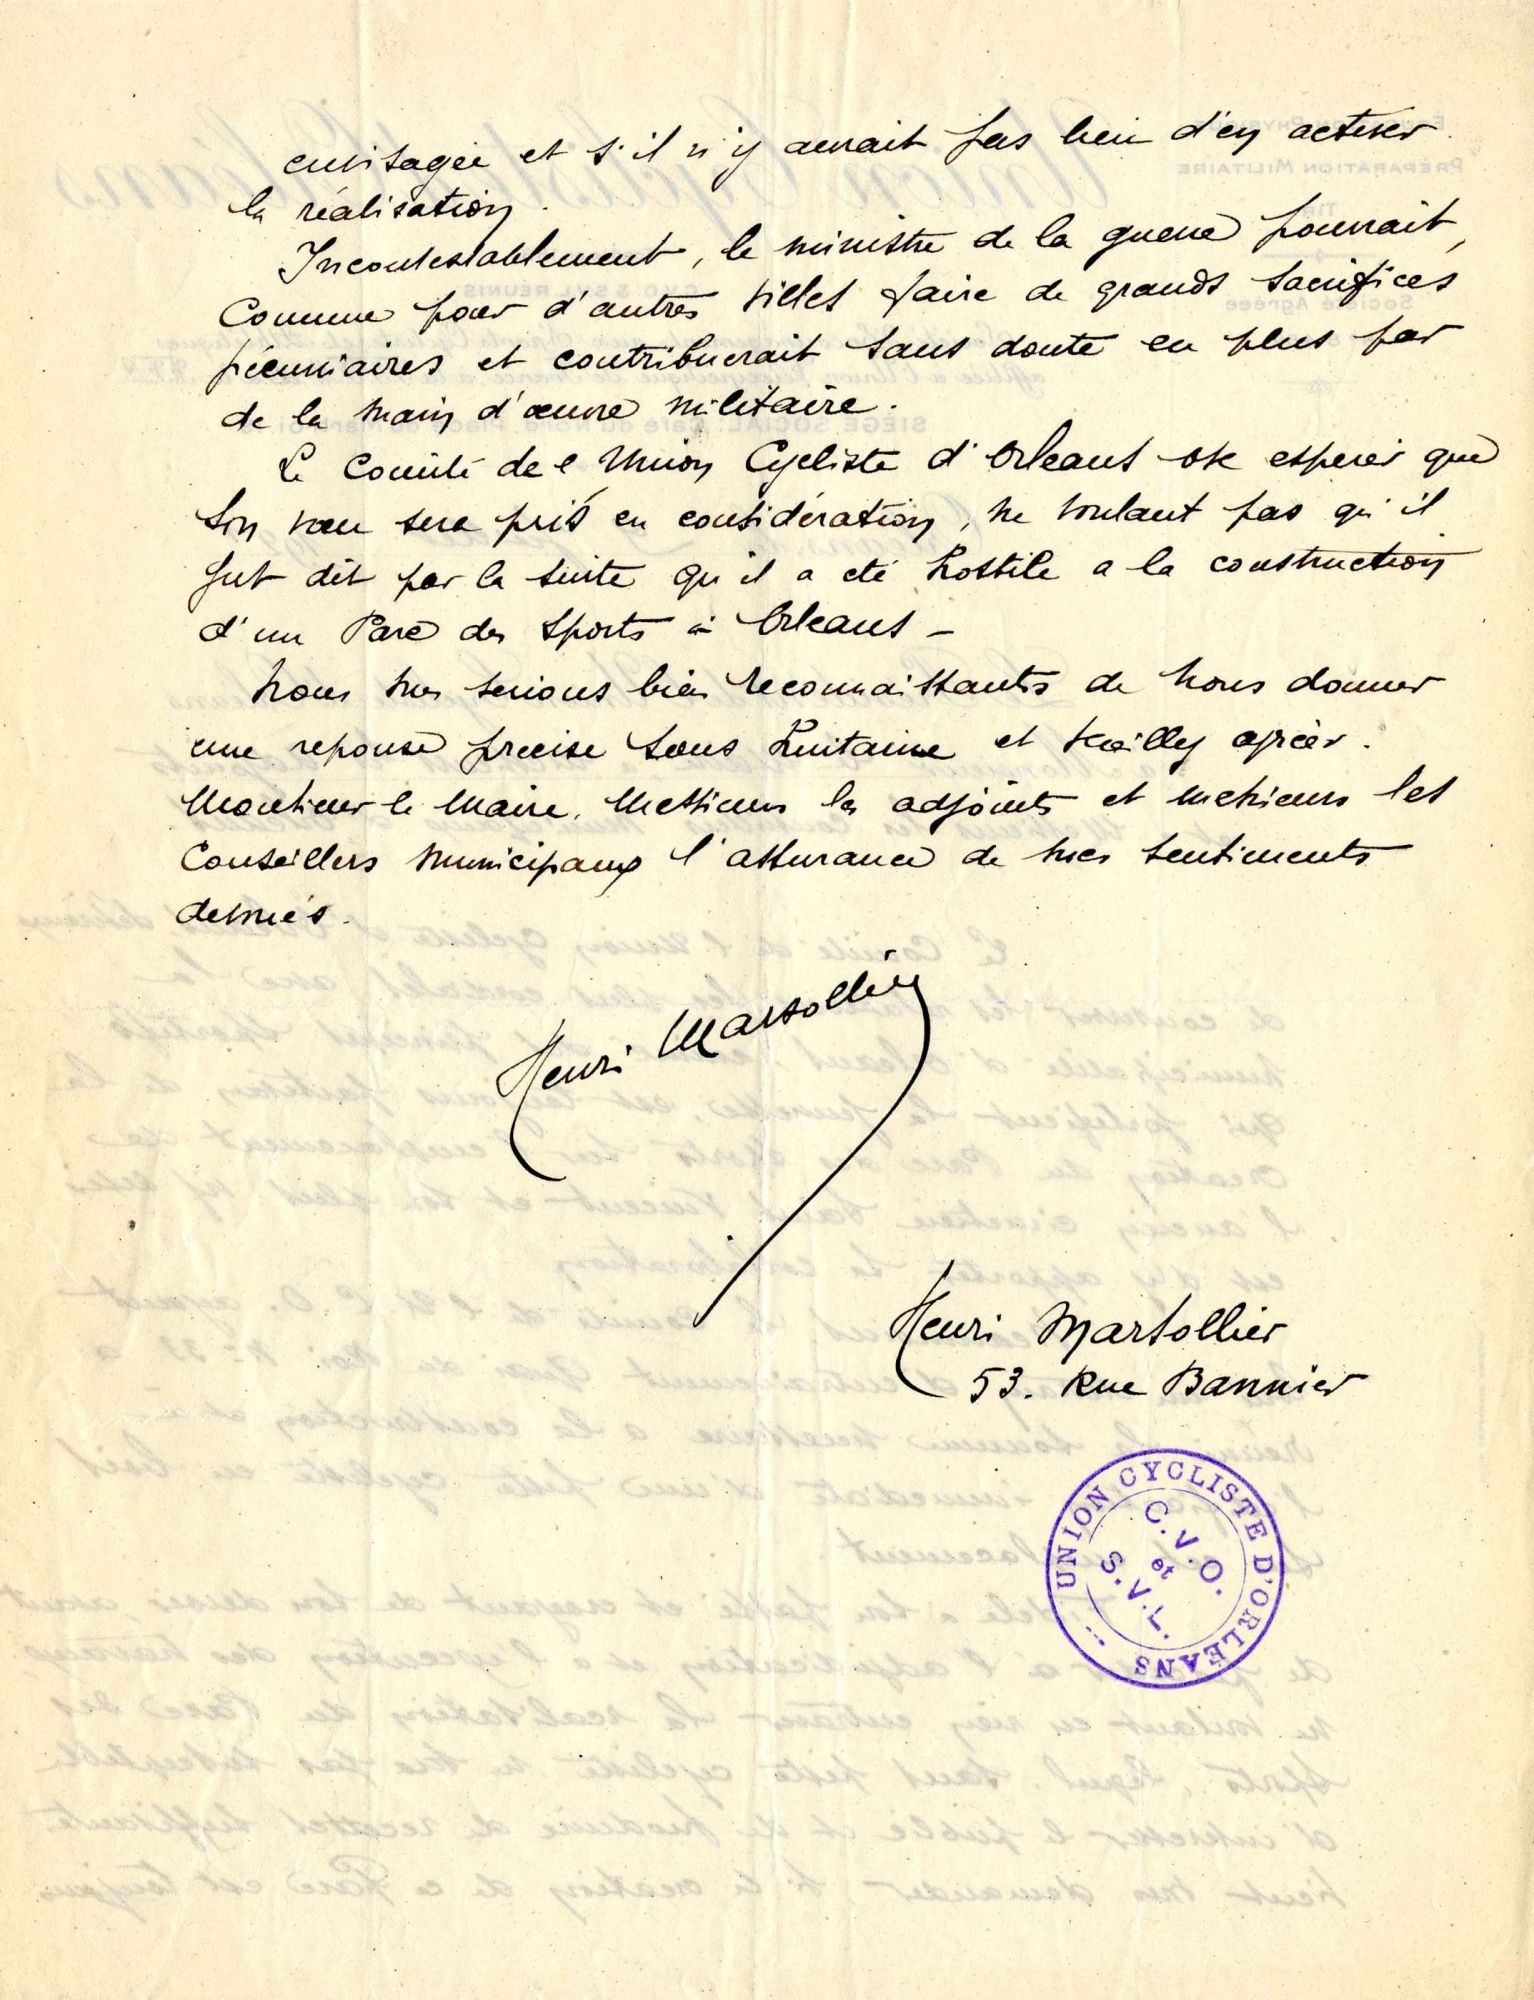 envisagée et s'il n'y aurait pas lieu d'en activer
la réalisation.
Incontestablement, le ministre de la guerre pourrait,
comme pour d'autres villes faire de grands sacrifices
pécuniaires et contribuerait sans doute en plus par
de la main d'œuvre militaire.
Le Comité de l'Union Cycliste d'Orleans ose esperer que
son vœu sera pris en considération, ne voulant pas qu'il
fut dit par la suite qu'il a été hostile a la construction
d'un Parc des Sports à Orleans -
Nous vous serions bien reconnaissants de nous donner
une reponse precise sous huitaine et veuillez agréer.
Monsieur le Maire, Messieurs les adjoints et messieurs les
Conseillers Municipaux l'assurance de mes sentiments
devoués.
Henri Marsollier
Henri Marsollier
53. Rue Bannier
UNION CYCLISTE D'ORLÉANS
C.V.O.
et
S.V.L.